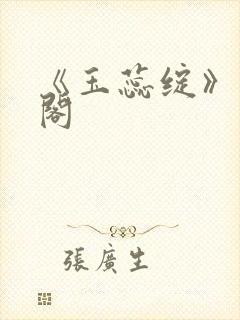 《玉蕊绽》
阁
張廣生